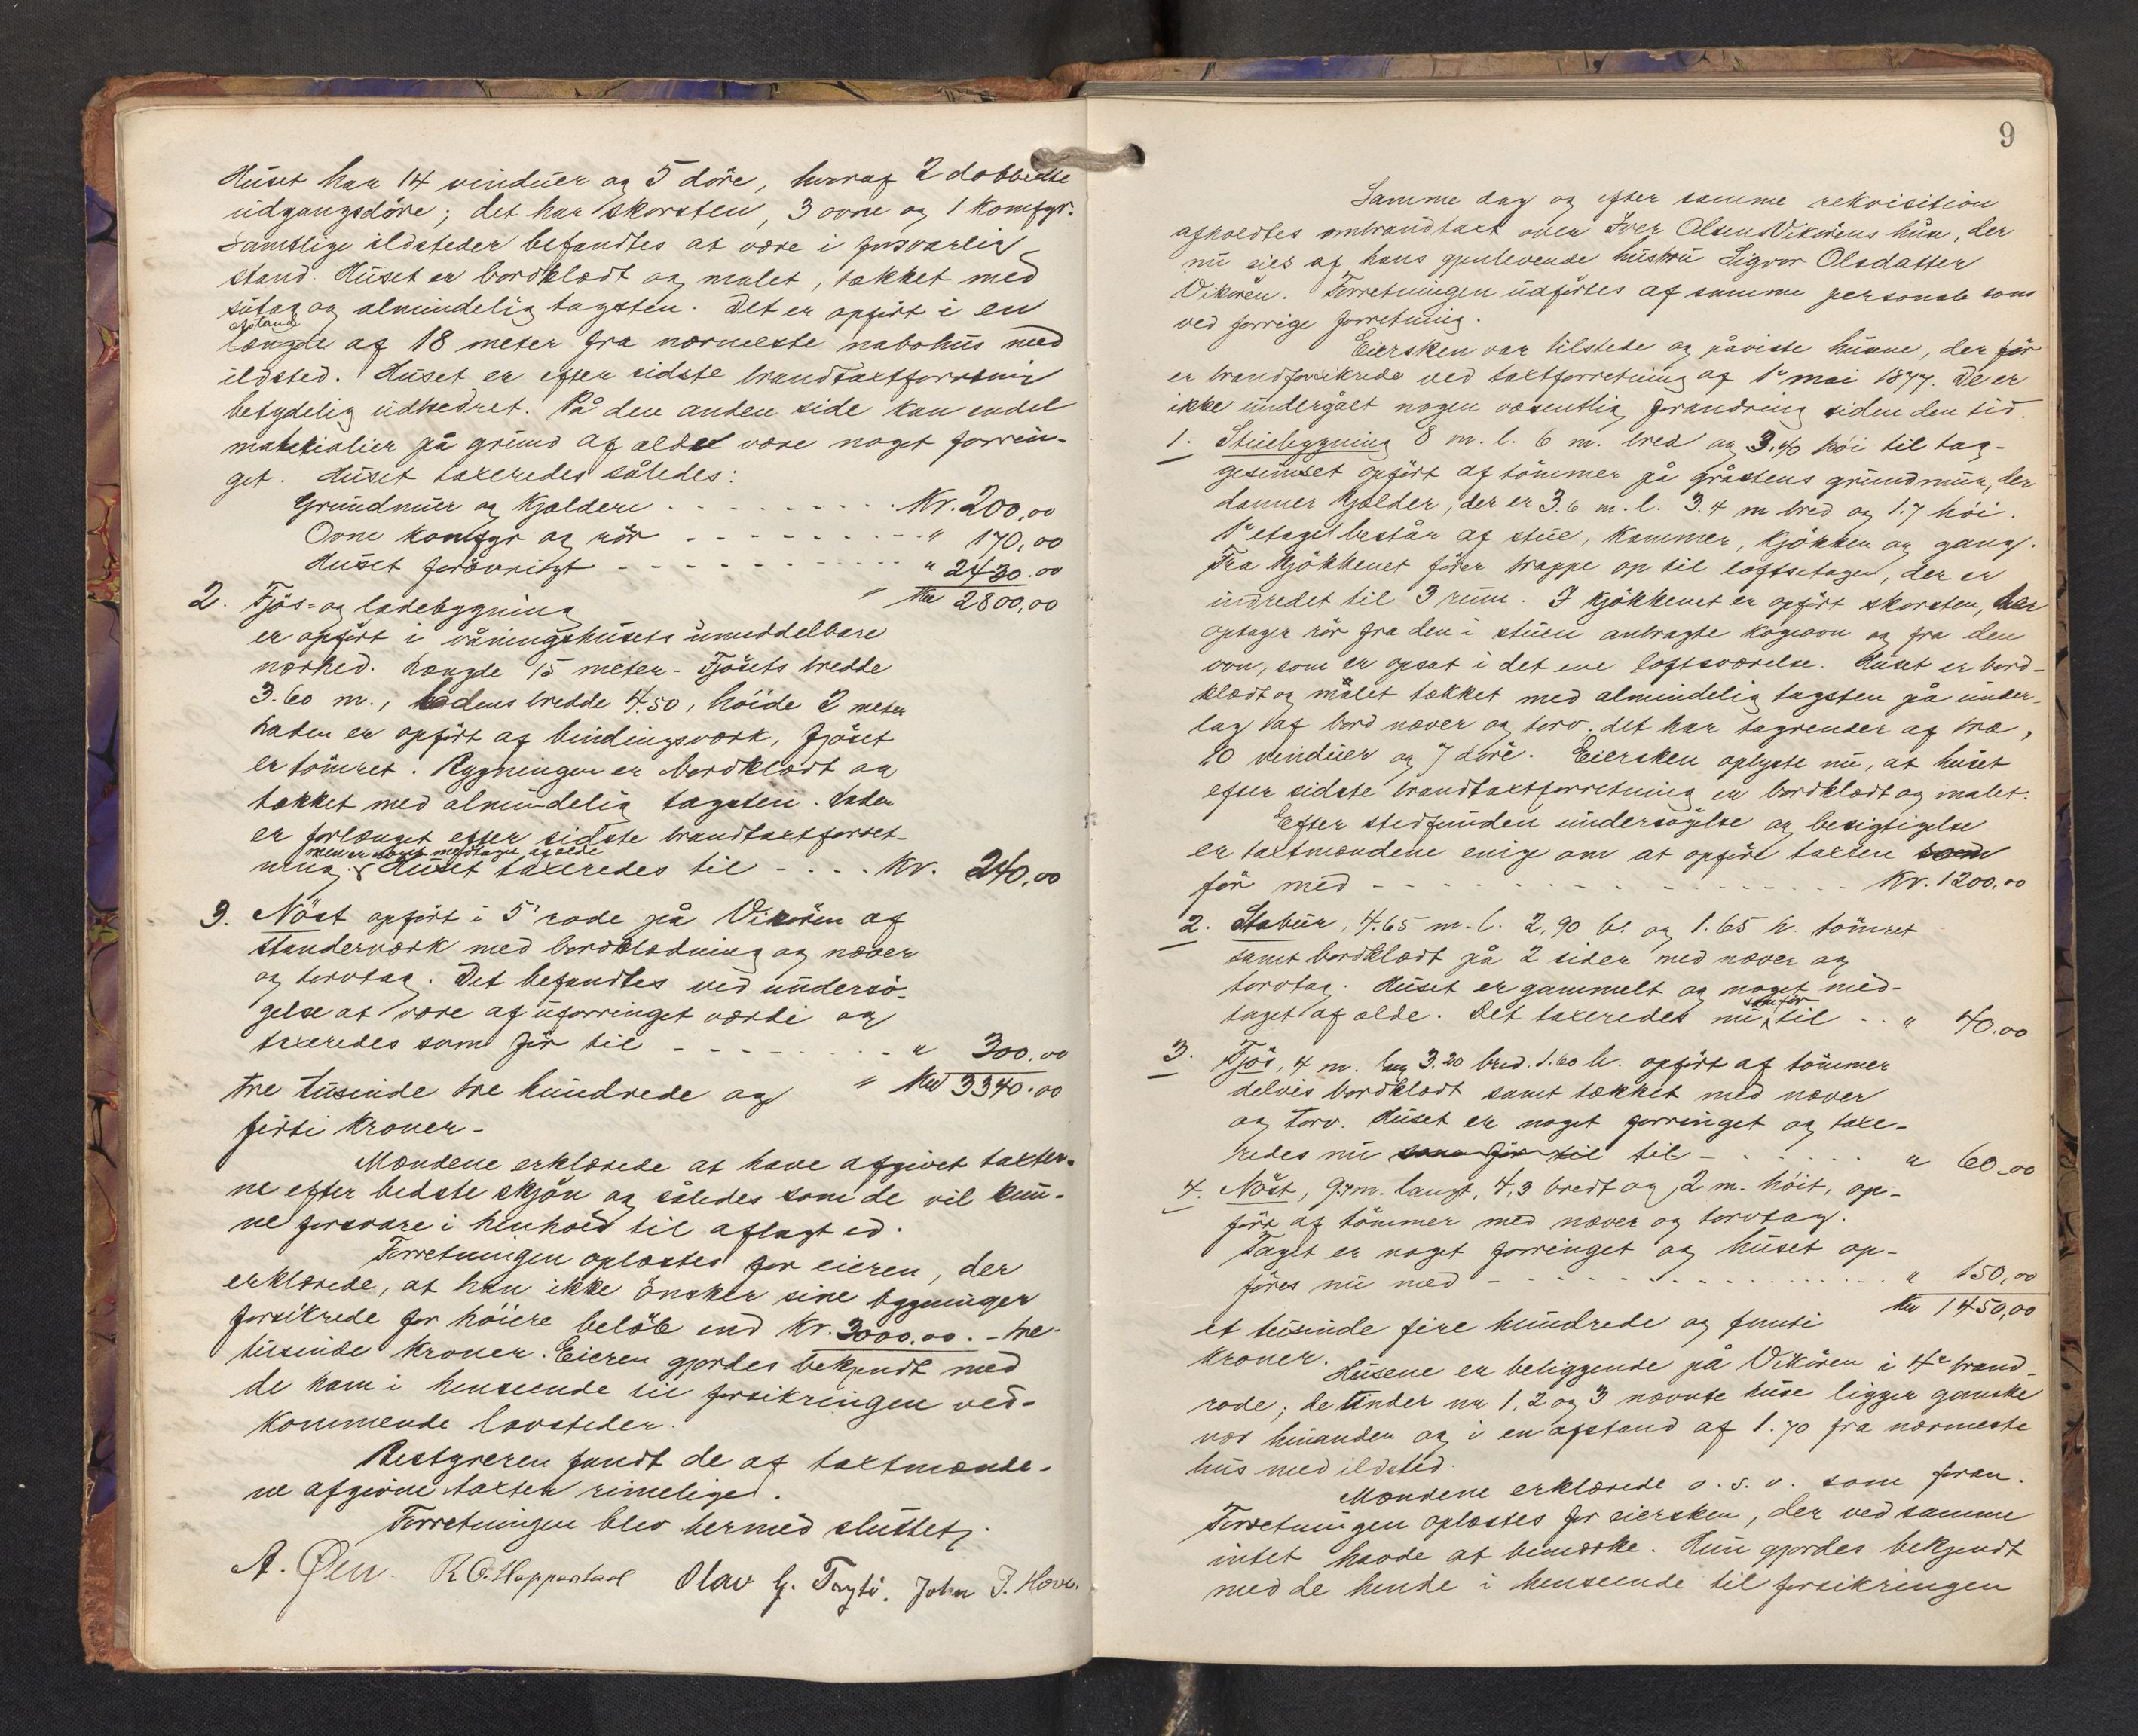 Huset har 14 vinduer og 5 döre, hvoraf 2 dobbelte
udgangsdöre; det har skorsten, 3 ovne og 1 komfyr.
Samtlige ildsteder befandtes at være i forsvarlig
stand. Huset er bordklædt og malet, tækket med
sutag og almindelig tagsten. Det er opfört i en
afstand
længde af 18 meter fra nærmeste nabohus med
ildsted. Huset er efter sidste brandtaxtforretning
betydelig udbedret. På den anden side kan endel
materialier på grund af ælde være noget forrin-
get. Huset taxeredes således:
Grundmur og kjældere - - - Kr. 200,00
Ovne komfyr og rör - - - " 170,00
Huset forövrigt - - - " 2430.00
" Kr 2800,00
2. Fjös- og ladebygning
er opfört i våningshusets umiddelbare
nærhed. Længde 15 meter - Fjösets bredde
3.60 m., ladens bredde 4.50, höide 2 meter
Laden er opfört af bindingsværk, fjöset
er tömret. Bygningen er bordklædt og
tækket med almindelig tagsten. Laden
er forlænget efter sidste brandtaxtforret-
men er noget medtagen af ælde
ning. Huset taxeredes til - - - Kr. 240,00
3. Nöst opfört i 5' rode på Vikören af
standerværk med bordklædning og næver
og torvtag. Det befandtes ved undersö-
gelse at være af uforringet værdi og
taxeredes som för til - - - " 300,00
" Kr 3340.00
tre tusinde tre hundrede og
förti kroner -
Mændene erklærede at have afgivet taxter-
ne efter bedste skjön og således som de vil kun-
ne forsvare i henhold til aflagt ed.
Forretningen oplæstes for eieren, der
erklærede, at han ikke önsker sine bygninger
forsikrede for höiere belöb end Kr. 3000.00. - tre
tusinde kroner. Eieren gjordes bekjendt med
de ham i henseende til forsikringen ved-
kommende lovsteder.
Bestyreren fandt de af taxtmænde-
ne afgivne taxter rimelige.
Forretningen blev hermed sluttet.
A. Øen. R O. Hoppestad Olav G. John J. Hove.
9
Samme dag og efter samme rekvisition
afholdtes ombrandtaxt over Iver Olsen Vikörens hus, der
nu eies af hans gjenlevende hustru Sigvor Olsdatter
Vikören. Forretningen udförtes af samme personale som
ved forrige forretning.
Eiersken var tilstede og påviste husene, der för
er brandforsikrede ved taxtforretning af 1ª mai 1877. De er
ikke undergået nogen væsentlig forandring siden den tid.
1. Stuebygning 8 m. l. 6 m. bred og 3.40 höi til tag-
gesimset opfört af tömmer på gråstens grundmur, der
danner kjælder, der er 3.6 m. l. 3.4 m bred og 1.7 höi.
1ª etage består af stue, kammer, kjökken og gang.
Fra kjökkenet förer trappe op til loftsetagen, der er
indredet til 3 rum. I kjökkenet er opfört skorsten, der
optager rör fra den i stuen anbragte kogeovn og fra den
ovn, som er opsat i det ene loftsværelse. Huset er bord-
klædt og malet tækket med almindelig tagsten på under-
lag af bord næver og torv. det har tagrender af træ,
10 vinduer og 7 döre. Eiersken oplyste nu, at huset
efter sidste brandtaxtforretning er bordklædt og malet.
Efter stedfunden undersögelse og besigtigelse
er taxtmændene enige om at opföre taxten som
för med - - - Kr. 1200,00
2. Stabur, 4.65 m. l. 2,90 b. og 1.65 h. tömret
samt bordklædt på 2 sider med næver og
torvtag. Huset er gammelt og noget med-
som för
taget af ælde. Det taxeredes nu til .. " 40.00
3. Fjös, 4 m. lang 3.20 bred. 1.60 h. opfört af tömmer
delvis bordklædt samt tækket med næver
og torv. Huset er noget forringet og taxe-
redes nu som för til til - - - " 60,00
4. Nöst, 9.7 m. langt, 4,3 bredt og 2 m. höit, op-
fört af tömmer med næver og torvtag.
Taget er noget forringet og huset op-
föres nu med - - - " 150,00
Kr 1450,00
et tusinde fire hundrede og femti
kroner.
Husene er beliggende på Vikören i 4ª brand-
rode; de under nr 1, 2 og 3 nævnte huse ligger ganske
nær hinanden og i en afstand af 1.70 fra nærmeste
hus med ildsted.
Mændene erklærede o. s. v. som foran.
Forretningen oplæstes for eiersken, der ved samme
intet havde at bemærke. Hun gjordes bekjendt
med de hende i henseende til forsikringen